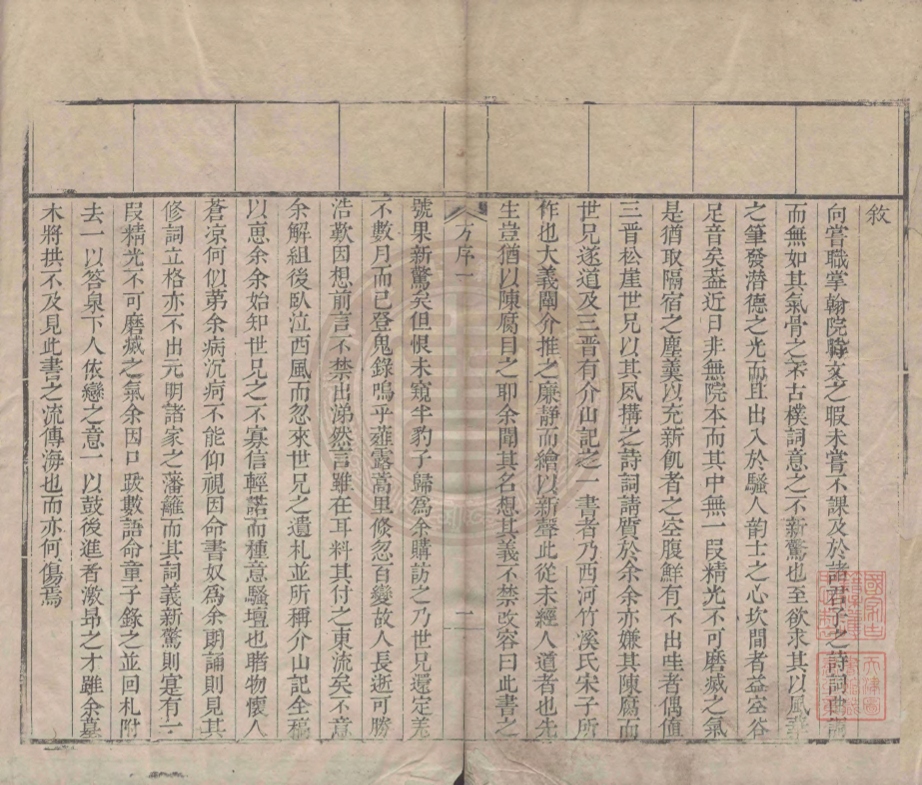 敘
向嘗職掌翰院將文之暇未嘗不課及於諸君子之詩詞曲調
而無如其氣骨之不古樸詞意之不新驚也至欲求其以風華
之筆發潛德之光而且出入於騷人韵士之心坎間者益空谷
足音矣葢近日非無院本而其中無一叚精光不可磨烕之氣
是猶取隔宿之塵羹以充新飢者之空腹鮮有不出哇者偶值
三晉松崖世兄以其夙構之詩詞請質於余余亦嫌其陳腐而
世兄遂道及三晉有介山記之一書者乃西河竹溪氏宋子所
作也大義闡介推之廉靜而繪以新聲此從未經人道者也先
生豈猶以陳腐目之耶余聞其名想其義不禁改容曰此書之
方序一
一
號果新驚矣但恨未窺半豹子歸為余購訪之乃世兄還定羗
不數月而已登鬼錄嗚乎薤露蒿里倐忽百變故人長逝可勝
浩歎因想前言不禁出涕然言雖在耳料其付之東流矣不意
余解組後臥泣西風而忽來世兄之遺札並所稱介山記全稿
以恵余余始知世兄之不寡信輕諾而種意騷壇也睹物懷人
蒼凉何似苐余病沉疴不能仰視因命書奴為余朗誦則見其
修詞立格亦不出元明諸家之藩籬而其詞義新驚則寔有一
叚精光不可磨烕之氣余因口跋數語命童子錄之並回札附
去一以答泉下人依戀之意一以鼓後進者激昂之才雖余墓
木將拱不及見此書之流傳海也而亦何傷焉